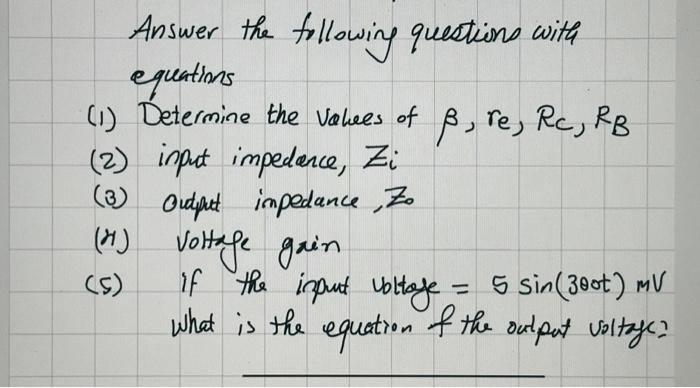 Answer the following questions with
equations
(1) Determine the values of β, re, Rc, RB
(2) input impedance, Zi
(3) output impedance, Zo
(4) Voltage gain
(5) if the input voltage = 5 sin(300t) mV
what is the equation of the output voltage?